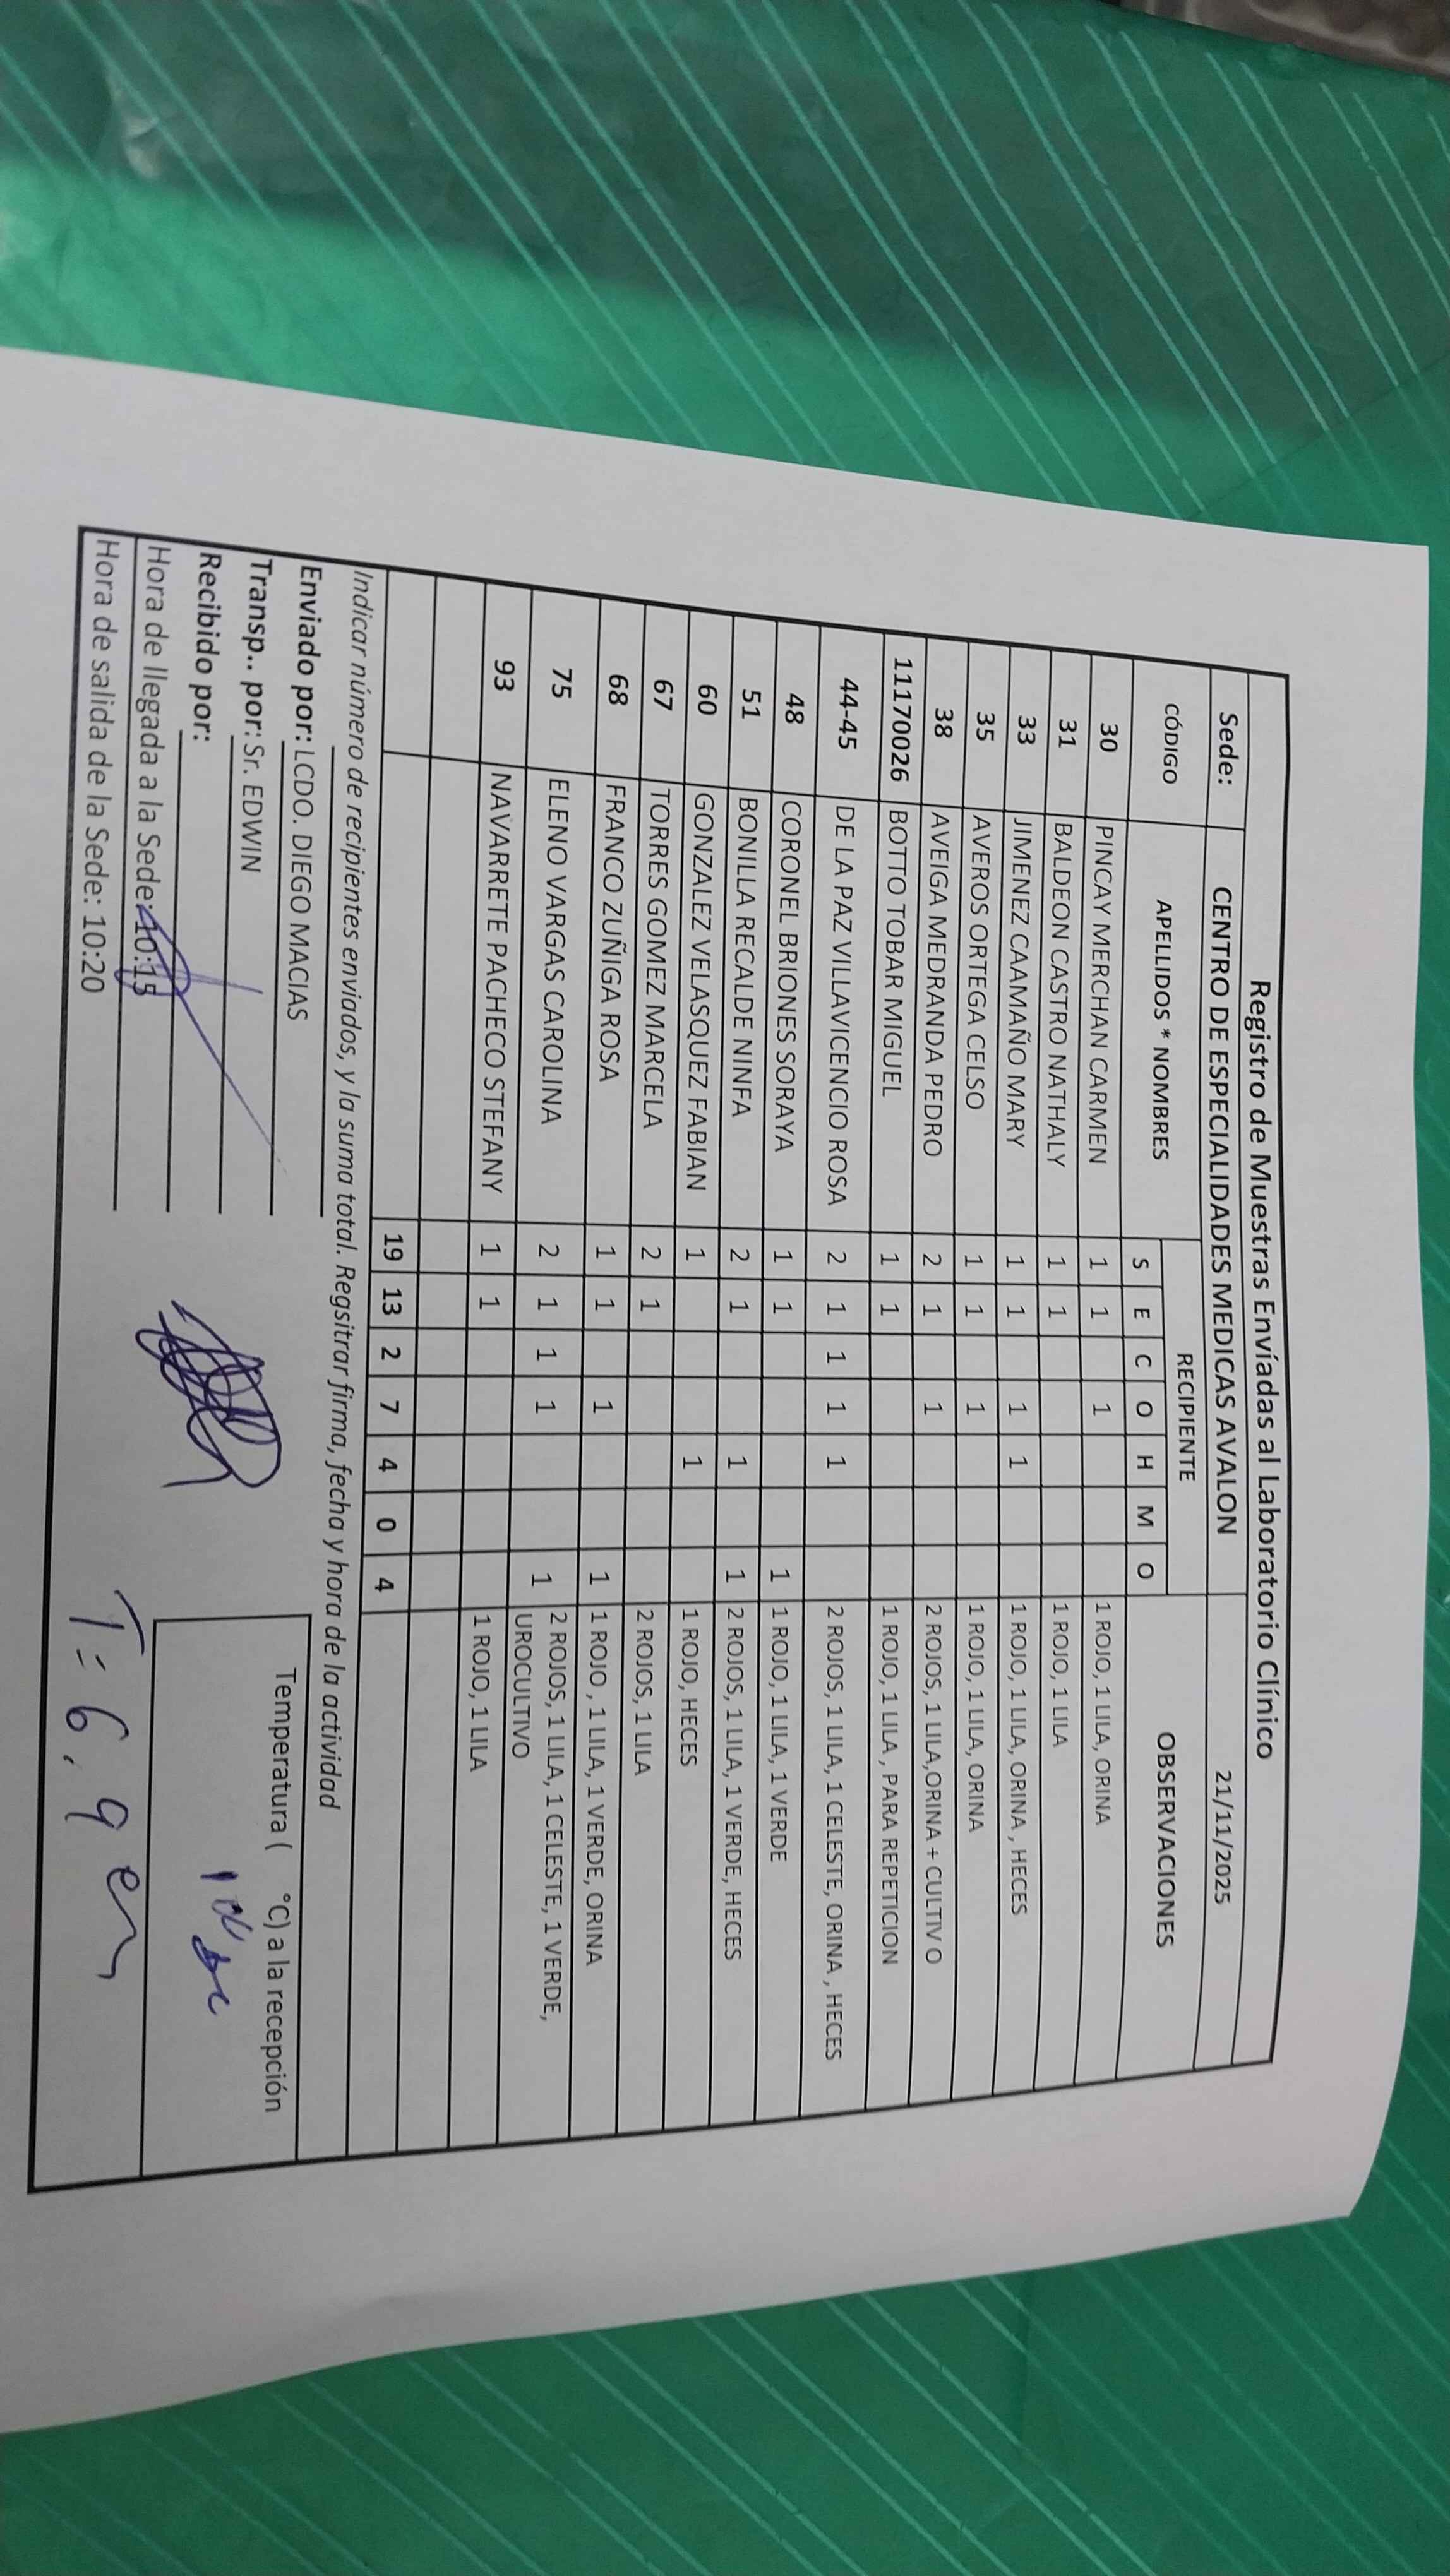 Registro de Muestras Envíadas al Laboratorio Clínico
Sede: CENTRO DE ESPECIALIDADES MEDICAS AVALON 21/11/2025
CÓDIGO APELLIDOS * NOMBRES RECIPIENTE OBSERVACIONES
S E C O H M O
30 PINCAY MERCHAN CARMEN 1 1 1 1 ROJO, 1 LILA, ORINA
31 BALDEON CASTRO NATHALY 1 1 1 ROJO, 1 LILA
33 JIMENEZ CAAMAÑO MARY 1 1 1 1 1 ROJO, 1 LILA, ORINA , HECES
35 AVEROS ORTEGA CELSO 1 1 1 1 ROJO, 1 LILA, ORINA
38 AVEIGA MEDRANDA PEDRO 2 1 1 2 ROJOS, 1 LILA,ORINA + CULTIVO
11170026 BOTTO TOBAR MIGUEL 1 1 1 ROJO, 1 LILA , PARA REPETICION
44-45 DE LA PAZ VILLAVICENCIO ROSA 2 1 1 1 1 2 ROJOS, 1 LILA, 1 CELESTE, ORINA , HECES
48 CORONEL BRIONES SORAYA 1 1 1 1 ROJO, 1 LILA, 1 VERDE
51 BONILLA RECALDE NINFA 2 1 1 1 2 ROJOS, 1 LILA, 1 VERDE, HECES
60 GONZALEZ VELASQUEZ FABIAN 1 1 1 ROJO, HECES
67 TORRES GOMEZ MARCELA 2 1 2 ROJOS, 1 LILA
68 FRANCO ZUÑIGA ROSA 1 1 1 1 1 ROJO , 1 LILA, 1 VERDE, ORINA
75 ELENO VARGAS CAROLINA 2 1 1 1 1 2 ROJOS, 1 LILA, 1 CELESTE, 1 VERDE,
UROCULTIVO
93 NAVARRETE PACHECO STEFANY 1 1 1 ROJO, 1 LILA
19 13 2 7 4 0 4
Indicar número de recipientes enviados, y la suma total. Regsitrar firma, fecha y hora de la actividad
Enviado por: LCDO. DIEGO MACIAS
Transp.. por: Sr. EDWIN
Recibido por:
Hora de llegada a la Sede: 10:15
Hora de salida de la Sede: 10:20
Temperatura ( °C) a la recepción
T= 6,9